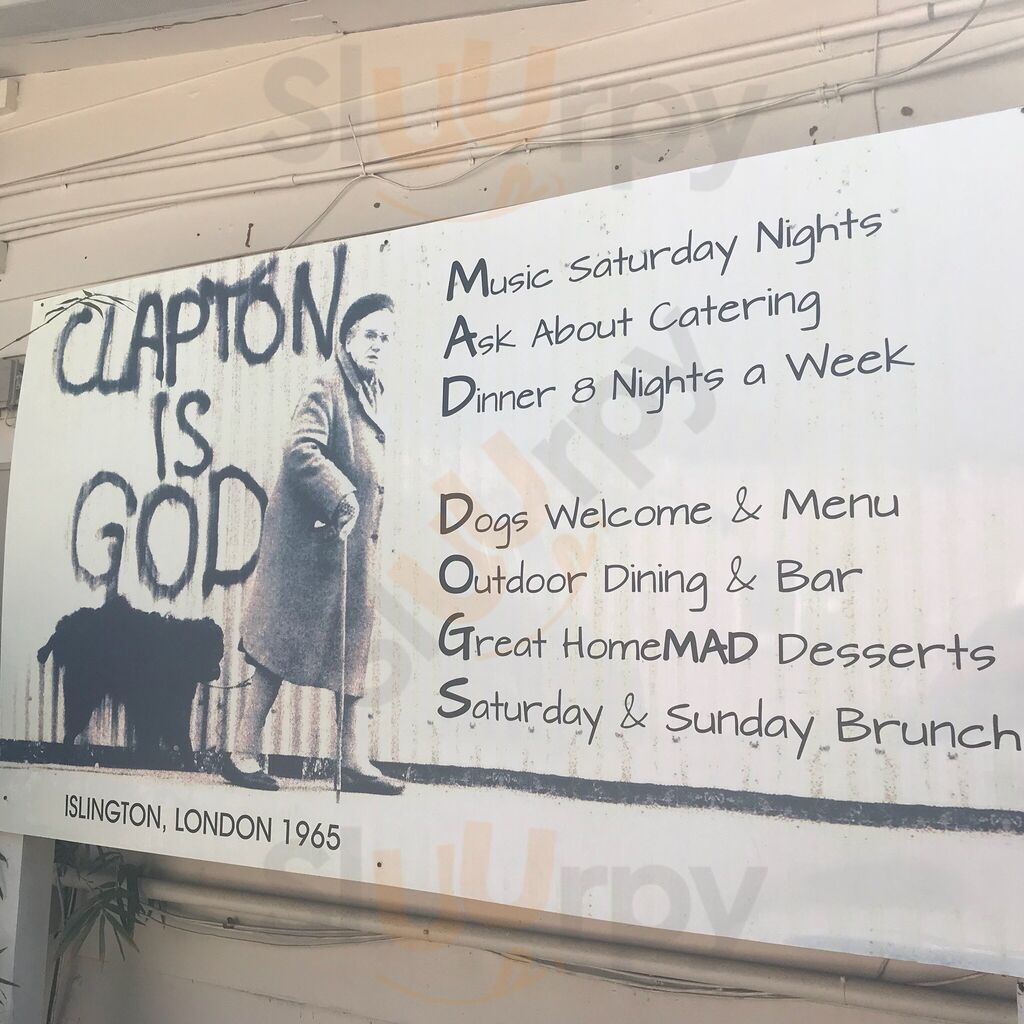 Sluurpy
CLAPTON
IS
GOD
Music Saturday Nights
Ask About Catering
Dinner 8 Nights a Week
Sluurpy
Dogs Welcome & Menu
Outdoor Dining & Bar
Great HomeMAD Desserts
Saturday & Sunday Brunch
ISLINGTON, LONDON 1965
Sluurpy